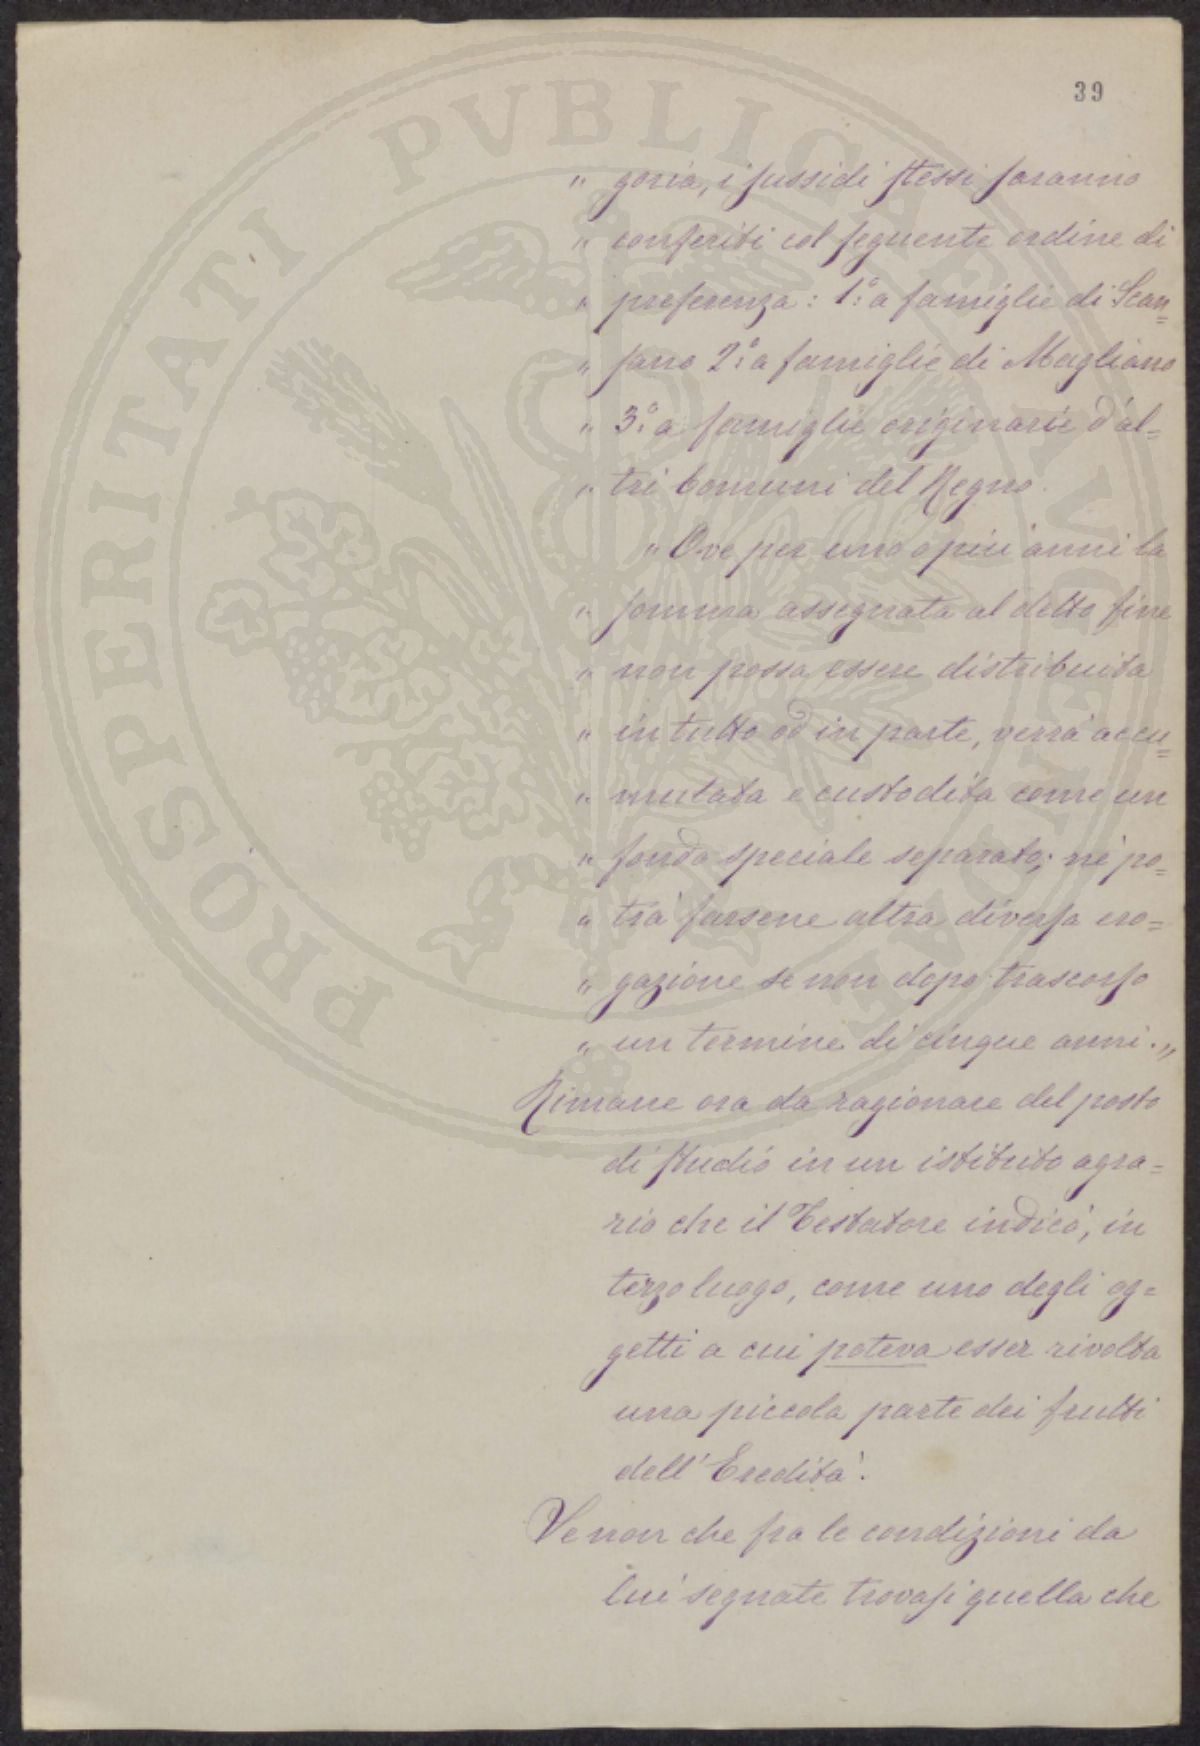 PROSPERITATI PVBLICAE AVGENDAE
39
" goria, i sussidi stessi saranno
" conferiti col seguente ordine di
" preferenza: 1.° a famiglie di Scan=
" sano 2.° a famiglie di Magliano
" 3.° a famiglie originarie d'al=
" tri Comuni del Regno.
" Ove per uno o più anni la
" somma assegnata al detto fine
" non possa essere distribuita
" in tutto od in parte, verrà accu=
" mulata e custodita come un
" fondo speciale separato; nè po=
" trà farsene altra diversa ero=
" gazione se non dopo trascorso
" un termine di cinque anni. "
Rimane ora da ragionare del posto
di studio in un istituto agra=
rio che il Testatore indicò, in
terzo luogo, come uno degli og=
getti a cui poteva esser rivolta
una piccola parte dei frutti
dell'Eredità.
Se non che fra le condizioni da
lui segnate trovasi quella che